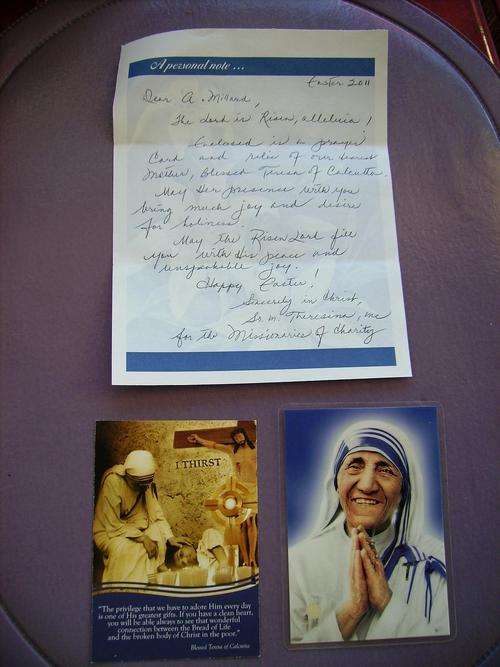 A personal note ...
Easter 2011
Dear A. Millard,
The Lord is Risen, alleluia!
Enclosed is a prayer
Card and relic of our dearest
Mother, Blessed Teresa of Calcutta.
May Her presence with you
bring much joy and desire
for holiness.
May the Risen Lord fill
you with His peace and
unspeakable joy.
Happy Easter!
Sincerely in Christ,
Sr. M. Theresina, MC
for the Missionaries of Charity
I THIRST
"The privilege that we have to adore Him every day
is one of His greatest gifts. If you have a clean heart,
you will be able always to see that wonderful
connection between the Bread of Life
and the broken body of Christ in the poor."
Blessed Teresa of Calcutta